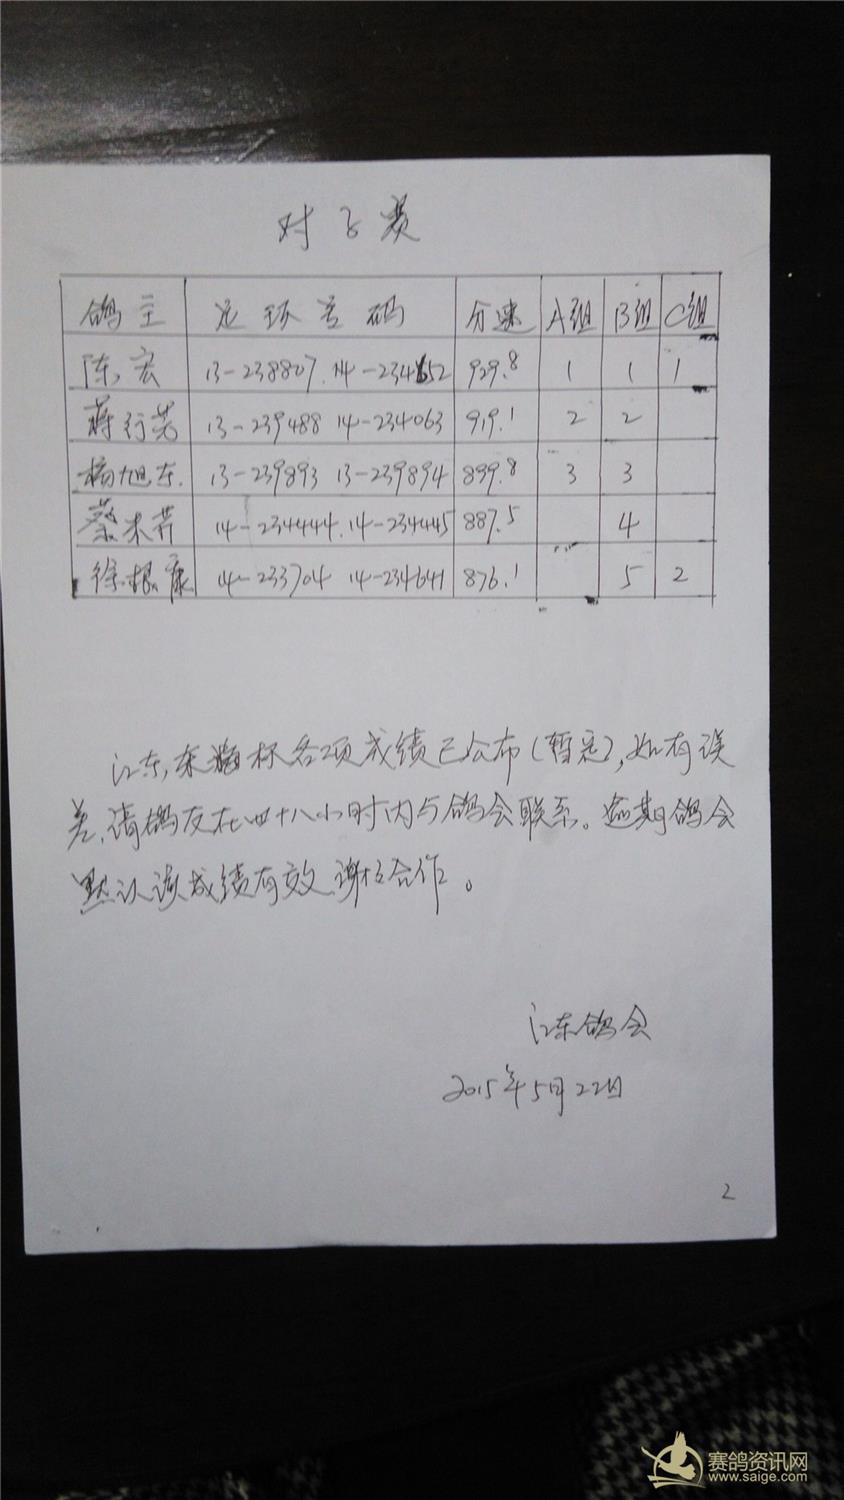 对子赛
鸽主 足环号码 分速 A组 B组 C组
陈宏 13-238807. 14-234652 929.8 1 1 1
蒋行芳 13-239488 14-234063 919.1 2 2
杨旭东. 13-239893 13-239894 899.8 3 3
蔡木芹 14-234444. 14-234445 887.5 4
徐根康 14-233704 14-234641 876.1 5 2
江东,东海杯各项成绩已公布(暂定),如有误
差,请鸽友在四十八小时内与鸽会联系。逾期鸽会
默认该成绩有效.谢谢合作。
江东鸽会
2015年5月22日
2
赛鸽资讯网
www.saige.com